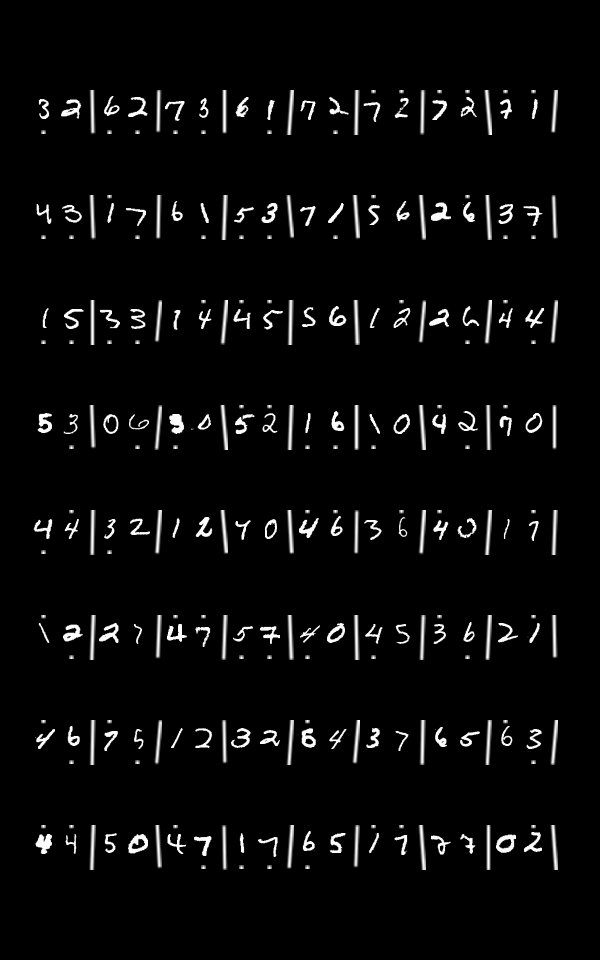 3 2 | 6 2 | 7 3 | 6 1 | 7 2 | 7 2 | 7 2 | 7 1 |
4 3 | 1 7 | 6 1 | 5 3 | 7 1 | 5 6 | 2 6 | 3 7 |
1 5 | 3 3 | 1 4 | 4 5 | 5 6 | 1 2 | 2 6 | 4 4 |
5 3 | 0 6 | 3 0 | 5 2 | 1 6 | 1 0 | 4 2 | 7 0 |
4 4 | 3 2 | 1 2 | 7 0 | 4 6 | 3 6 | 4 0 | 1 7 |
1 2 | 2 7 | 4 7 | 5 7 | 4 0 | 4 5 | 3 6 | 2 1 |
4 6 | 7 5 | 1 2 | 3 2 | 6 4 | 3 7 | 6 5 | 6 3 |
4 4 | 5 0 | 4 7 | 1 7 | 6 5 | 1 7 | 7 7 | 0 2 |